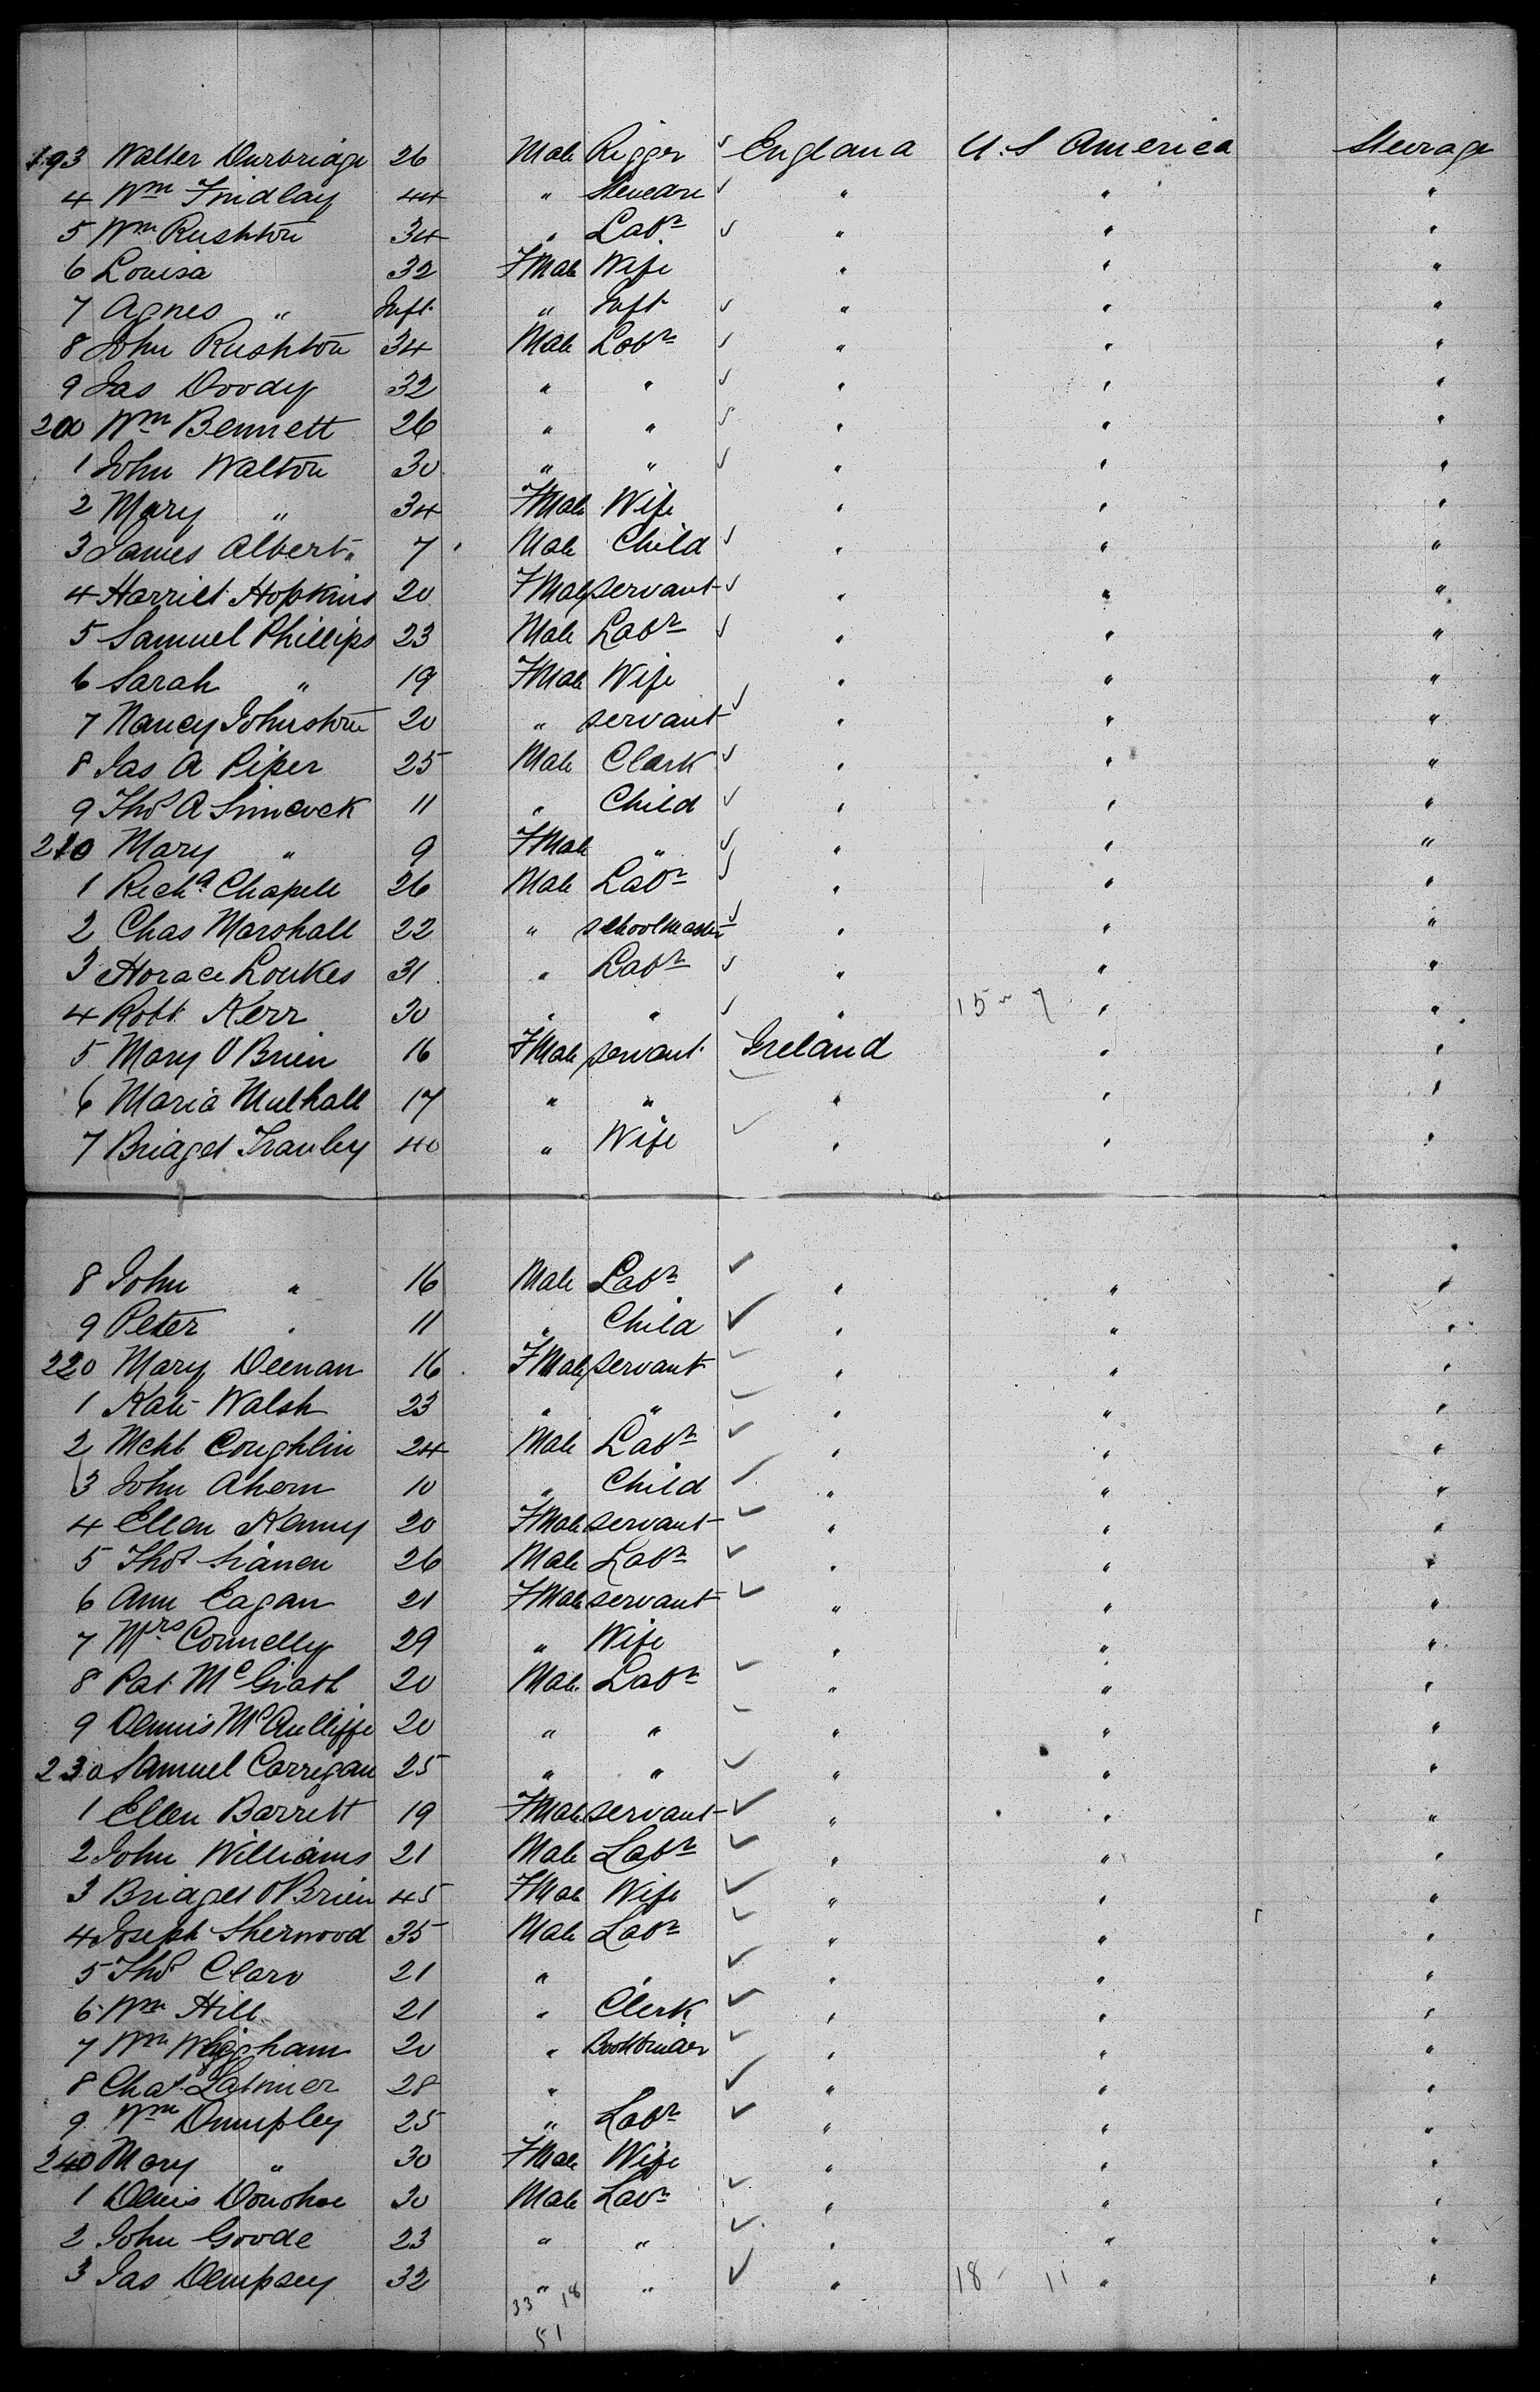 193 Walter Durbridge 26 Male Rigger England U.S America Steerage
4 Wm Findlay 44 " Stevedore " " "
5 Wm Rushton 34 " Labr " " "
6 Louisa 32 FMale Wife " " "
7 Agnes " Inft. " Inft. " " "
8 John Rushton 34 Male Labr " " "
9 Jas Doody 32 " " " " "
200 Wm Bennett 26 " " " " "
1 John Walton 30 " " " " "
2 Mary " 34 FMale Wife " " "
3 James Albert " 7 Male Child " " "
4 Harriet Hopkins 20 FMale servant " " "
5 Samuel Phillips 23 Male Labr " " "
6 Sarah " 19 FMale Wife " " "
7 Nancy Johnston 20 " servant " " "
8 Jas A Piper 25 Male Clark " " "
9 Thos A Simcock 11 " Child " " "
210 Mary " 9 FMale " " " "
1 Richd Chapell 26 Male Labr " " "
2 Chas Marshall 22 " schoolmaster " " "
3 Horace Loukes 31 " Labr " " "
4 Robt Kerr 30 " " " 15 " 7 " "
5 Mary O'Brien 16 FMale servant Ireland " "
6 Maria Mulhall 17 " " " " "
7 Bridget 40 " Wife " " "
8 John " 16 Male Labr " " "
9 Peter " 11 " Child " " "
220 Mary Deenan 16 FMale servant " " "
1 Kate Walsh 23 " " " " "
2 Mchl Coughlin 24 Male Labr " " "
3 John Ahern 10 " Child " " "
4 Ellen Kenny 20 FMale servant " " "
5 Thos 26 Male Labr " " "
6 Ann Eagan 21 FMale servant " " "
7 Mrs Connelly 29 " Wife " " "
8 Pat McGrath 20 Male Labr " " "
9 Dennis McAuliffe 20 " " " " "
230 Samuel Corregan 25 " " " " "
1 Ellen Barrett 19 FMale servant " " "
2 John Williams 21 Male Labr " " "
3 Bridget O'Brien 45 FMale Wife " " "
4 Joseph Sherwood 35 Male Labr " " "
5 Thos Claro 21 " " " " "
6 Wm Hill 21 " Clerk " " "
7 Wm 20 " Bookbinder " " "
8 Chas Latimer 28 " " " " "
9 Wm Dumpley 25 " Labr " " "
240 Mary " 30 FMale Wife " " "
1 Denis Donohoe 30 Male Labr " " "
2 John Goode 23 " " " " "
3 Jas Dempsey 32 " " " 18 - 11 " "
33 " 18
51